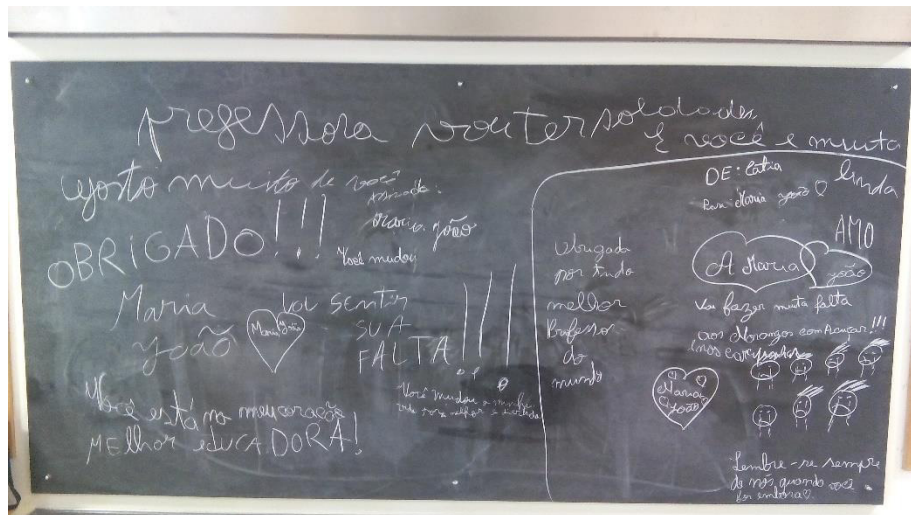 professora vou ter soldades,
E você e muita
linda
gosto muito de você
Assinado:
Maria joão
OBRIGADO!!!
Você mudou
Maria
joão
Maria João
Vou sentir
SUA
FALTA!!!
Você está no meu coração
MElhor educaDORA!
Você mudou a minha
vida
Obrigada
por tudo
melhor
Professor
do
mundo
DE: Catia
Para: Maria joão
AMO
A Maria
joão
Vai fazer muita falta
aos Morangos com Açucar!!!
Maria
João
Lembre-se sempre
de nós quando você
for embora